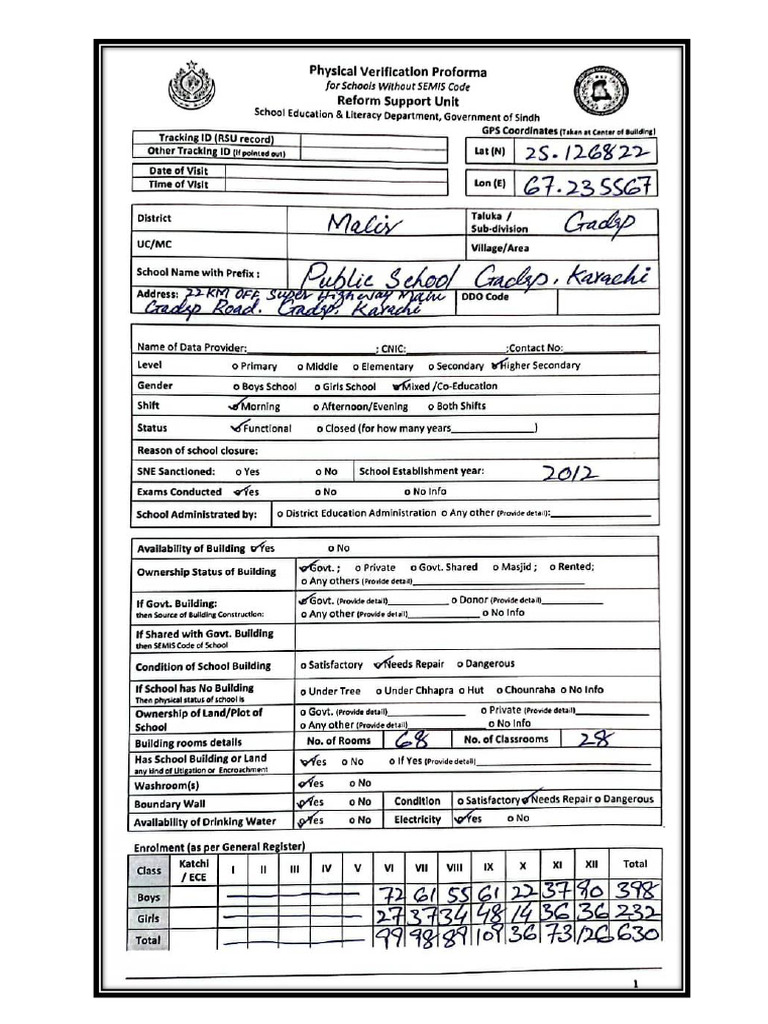 Physical Verification Proforma
for Schools Without SEMIS Code
Reform Support Unit
School Education & Literacy Department, Government of Sindh
GPS Coordinates (Taken at Center of Building)
Tracking ID (RSU record)
Other Tracking ID (If pointed out)
Lat (N) 25.126822
Date of Visit
Time of Visit
Lon (E) 67.235567
District Malir Taluka / Sub-division Gadap
UC/MC Village/Area
School Name with Prefix : Public School Gadap, Karachi
Address: 22 KM OFF Super Highway Main DDO Code
Gadap Road. Gadap, Karachi
Name of Data Provider:____ ; CNIC:____ ;Contact No:____
Level o Primary o Middle o Elementary o Secondary ✓Higher Secondary
Gender o Boys School o Girls School ✓Mixed /Co-Education
Shift ✓Morning o Afternoon/Evening o Both Shifts
Status ✓Functional o Closed (for how many years____)
Reason of school closure:
SNE Sanctioned: o Yes o No School Establishment year: 2012
Exams Conducted ✓Yes o No o No Info
School Administrated by: o District Education Administration o Any other (Provide detail):____
Availability of Building ✓Yes o No
Ownership Status of Building ✓Govt. ; o Private o Govt. Shared o Masjid ; o Rented;
o Any others (Provide detail)____
If Govt. Building: ✓Govt. (Provide detail)____ o Donor (Provide detail)____
then Source of Building Construction: o Any other (Provide detail)____ o No Info
If Shared with Govt. Building
then SEMIS Code of School
Condition of School Building o Satisfactory ✓Needs Repair o Dangerous
If School has No Building o Under Tree o Under Chhapra o Hut o Chounraha o No Info
Then physical status of school is
Ownership of Land/Plot of School o Govt. (Provide detail)____ o Private (Provide detail)____
o Any other (Provide detail)____ o No Info
Building rooms details No. of Rooms 68 No. of Classrooms 28
Has School Building or Land ✓Yes o No o If Yes (Provide detail)____
any kind of Litigation or Encroachment
Washroom(s) ✓Yes o No
Boundary Wall ✓Yes o No Condition o Satisfactory ✓Needs Repair o Dangerous
Availability of Drinking Water ✓Yes o No Electricity ✓Yes o No
Enrolment (as per General Register)
Class Katchi / ECE I II III IV V VI VII VIII IX X XI XII Total
Boys 72 61 55 61 22 37 90 398
Girls 27 37 34 48 14 36 36 232
Total 99 98 89 109 36 73 126 630
1